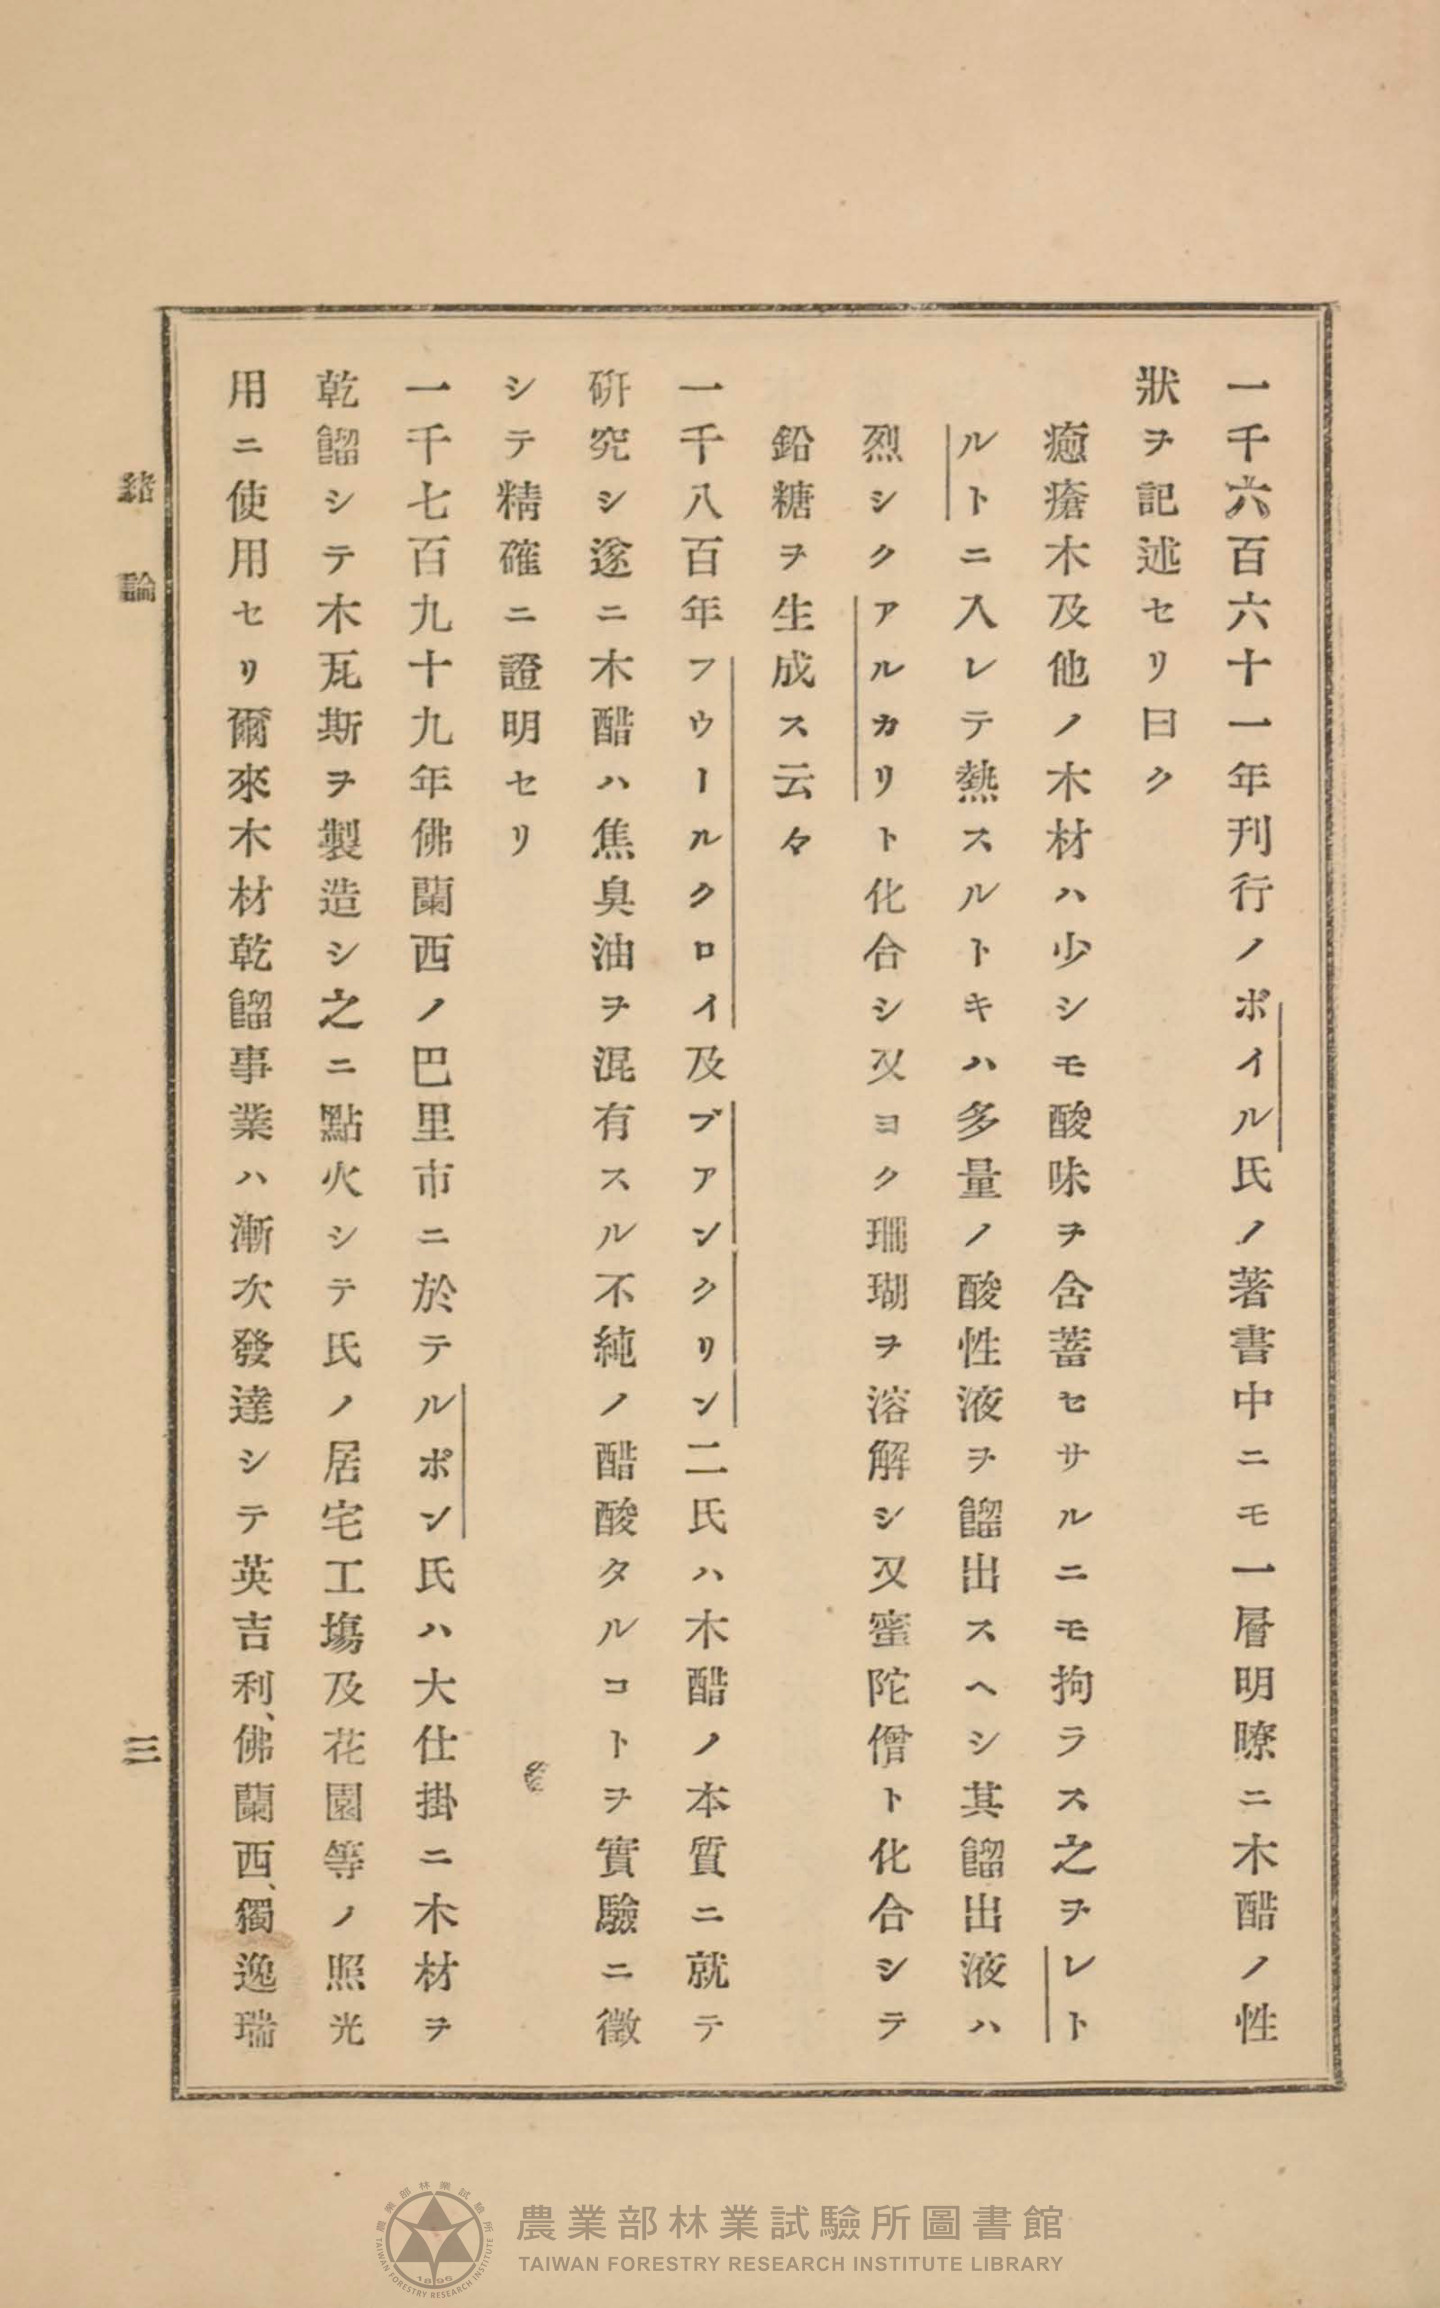 一千六百六十一年刊行ノボイル氏ノ著書中ニモ一層明瞭ニ木醋ノ性
狀ヲ記述セリ曰ク
癒瘡木及他ノ木材ハ少シモ酸味ヲ含蓄セサルニモ拘ラス之ヲレト
ルトニ入レテ熱スルトキハ多量ノ酸性液ヲ餾出スヘシ其餾出液ハ
烈シクアルカリト化合シ又ヨク珊瑚ヲ溶解シ又蜜陀僧ト化合シテ
鉛糖ヲ生成ス云々
一千八百年フウールクロイ及ブアンクリン二氏ハ木醋ノ本質ニ就テ
硏究シ遂ニ木醋ハ焦臭油ヲ混有スル不純ノ醋酸タルコトヲ實驗ニ徵
シテ精確ニ證明セリ
一千七百九十九年佛蘭西ノ巴里市ニ於テルポン氏ハ大仕掛ニ木材ヲ
乾餾シテ木瓦斯ヲ製造シ之ニ點火シテ氏ノ居宅工塲及花園等ノ照光
用ニ使用セリ爾來木材乾餾事業ハ漸次發達シテ英吉利、佛蘭西、獨逸瑞
緖論
三
農業部林業試驗所圖書館
TAIWAN FORESTRY RESEARCH INSTITUTE LIBRARY
農業部林業試驗所
TAIWAN FORESTRY RESEARCH INSTITUTE
1896